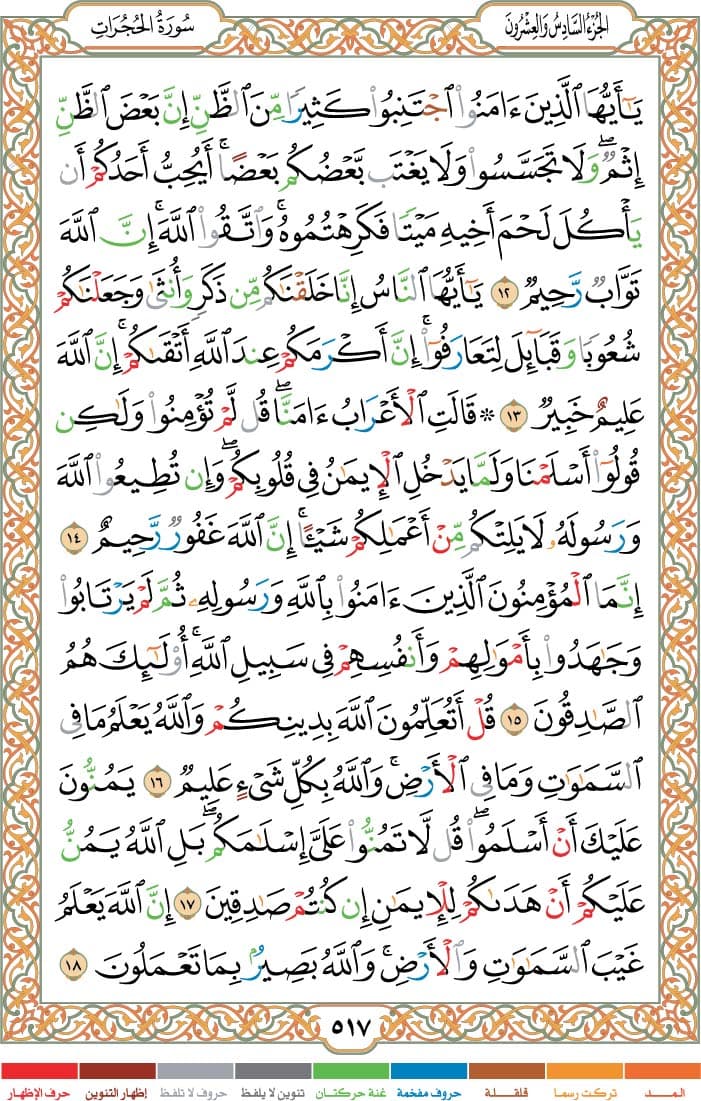 الجُزْءُ السَّادِسُ وَالعِشْرُونَ
سُورَةُ الحُجُرَاتِ
يَـٰٓأَيُّهَا ٱلَّذِينَ ءَامَنُوا۟ ٱجْتَنِبُوا۟ كَثِيرًا مِّنَ ٱلظَّنِّ إِنَّ بَعْضَ ٱلظَّنِّ
إِثْمٌ ۖ وَلَا تَجَسَّسُوا۟ وَلَا يَغْتَب بَّعْضُكُم بَعْضًا ۚ أَيُحِبُّ أَحَدُكُمْ أَن
يَأْكُلَ لَحْمَ أَخِيهِ مَيْتًا فَكَرِهْتُمُوهُ ۚ وَٱتَّقُوا۟ ٱللَّهَ ۚ إِنَّ ٱللَّهَ
تَوَّابٌ رَّحِيمٌ ١٢ يَـٰٓأَيُّهَا ٱلنَّاسُ إِنَّا خَلَقْنَـٰكُم مِّن ذَكَرٍ وَأُنثَىٰ وَجَعَلْنَـٰكُمْ
شُعُوبًا وَقَبَآئِلَ لِتَعَارَفُوٓا۟ ۚ إِنَّ أَكْرَمَكُمْ عِندَ ٱللَّهِ أَتْقَىٰكُمْ ۚ إِنَّ ٱللَّهَ
عَلِيمٌ خَبِيرٌ ١٣ ۞ قَالَتِ ٱلْأَعْرَابُ ءَامَنَّا ۖ قُل لَّمْ تُؤْمِنُوا۟ وَلَـٰكِن
قُولُوٓا۟ أَسْلَمْنَا وَلَمَّا يَدْخُلِ ٱلْإِيمَـٰنُ فِى قُلُوبِكُمْ ۖ وَإِن تُطِيعُوا۟ ٱللَّهَ
وَرَسُولَهُۥ لَا يَلِتْكُم مِّنْ أَعْمَـٰلِكُمْ شَيْـًٔا ۚ إِنَّ ٱللَّهَ غَفُورٌ رَّحِيمٌ ١٤
إِنَّمَا ٱلْمُؤْمِنُونَ ٱلَّذِينَ ءَامَنُوا۟ بِٱللَّهِ وَرَسُولِهِۦ ثُمَّ لَمْ يَرْتَابُوا۟
وَجَـٰهَدُوا۟ بِأَمْوَٰلِهِمْ وَأَنفُسِهِمْ فِى سَبِيلِ ٱللَّهِ ۚ أُو۟لَـٰٓئِكَ هُمُ
ٱلصَّـٰدِقُونَ ١٥ قُلْ أَتُعَلِّمُونَ ٱللَّهَ بِدِينِكُمْ وَٱللَّهُ يَعْلَمُ مَا فِى
ٱلسَّمَـٰوَٰتِ وَمَا فِى ٱلْأَرْضِ ۚ وَٱللَّهُ بِكُلِّ شَىْءٍ عَلِيمٌ ١٦ يَمُنُّونَ
عَلَيْكَ أَنْ أَسْلَمُوا۟ ۖ قُل لَّا تَمُنُّوا۟ عَلَىَّ إِسْلَـٰمَكُم ۖ بَلِ ٱللَّهُ يَمُنُّ
عَلَيْكُمْ أَنْ هَدَىٰكُمْ لِلْإِيمَـٰنِ إِن كُنتُمْ صَـٰدِقِينَ ١٧ إِنَّ ٱللَّهَ يَعْلَمُ
غَيْبَ ٱلسَّمَـٰوَٰتِ وَٱلْأَرْضِ ۚ وَٱللَّهُ بَصِيرٌۢ بِمَا تَعْمَلُونَ ١٨
٥١٧
المـــد تركت رسما قلقـلـة حروف مفخمة غنة حركتـان تنوين لا يلفظ حروف لا تلفظ إظهار التنوين حرف الإظهار